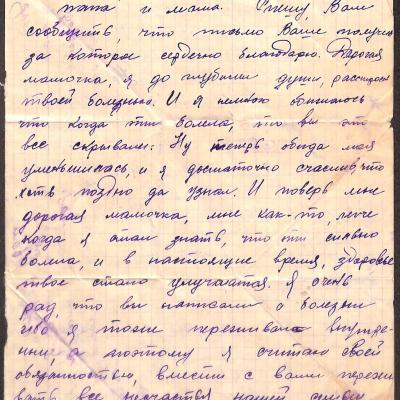 папа и мама. Спешу Вам
сообщить, что письмо Ваше получил
за которое сердечно благодарю. Дорогая
мамочка, я до глубины души, расстроен
твоей болезнью. И я немного обижаюсь
что когда ты болела, то вы это
все скрывали. Ну теперь обида моя
уменьшилась, и я достаточно счастлив, что
хоть поздно да узнал. И поверь мне
дорогая мамочка, мне как-то, легче
когда я стал знать, что ты сильно
болела, и в настоящие время, здоровье
твое стало улучшатся. Я очень
рад, что вы написали о болезни
ибо я тоже переживаю внутре-
нне, а поэтому я считаю своей
обязанностью, вместе с вами пережи
вать все несчастья нашей семьи